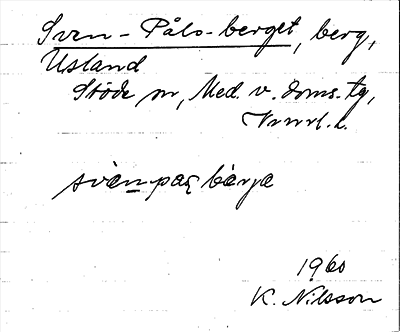 Sven-Påls-berget, berg,
Usland
Stöde sn, Med. v. doms. tg,
Vrnrl. l.
svän pas bärja
1960
K. Nilsson